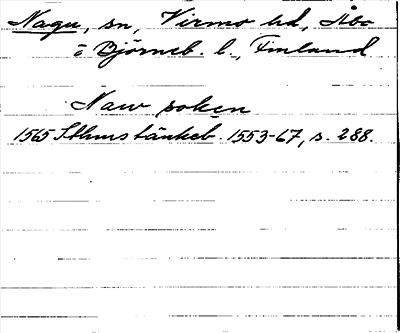 Nagu, sn, Virmo hd, Åbo
o Björneb. l., Finland
Naw soken
1565 Sthms tänkeb. 1553-67, s. 288.